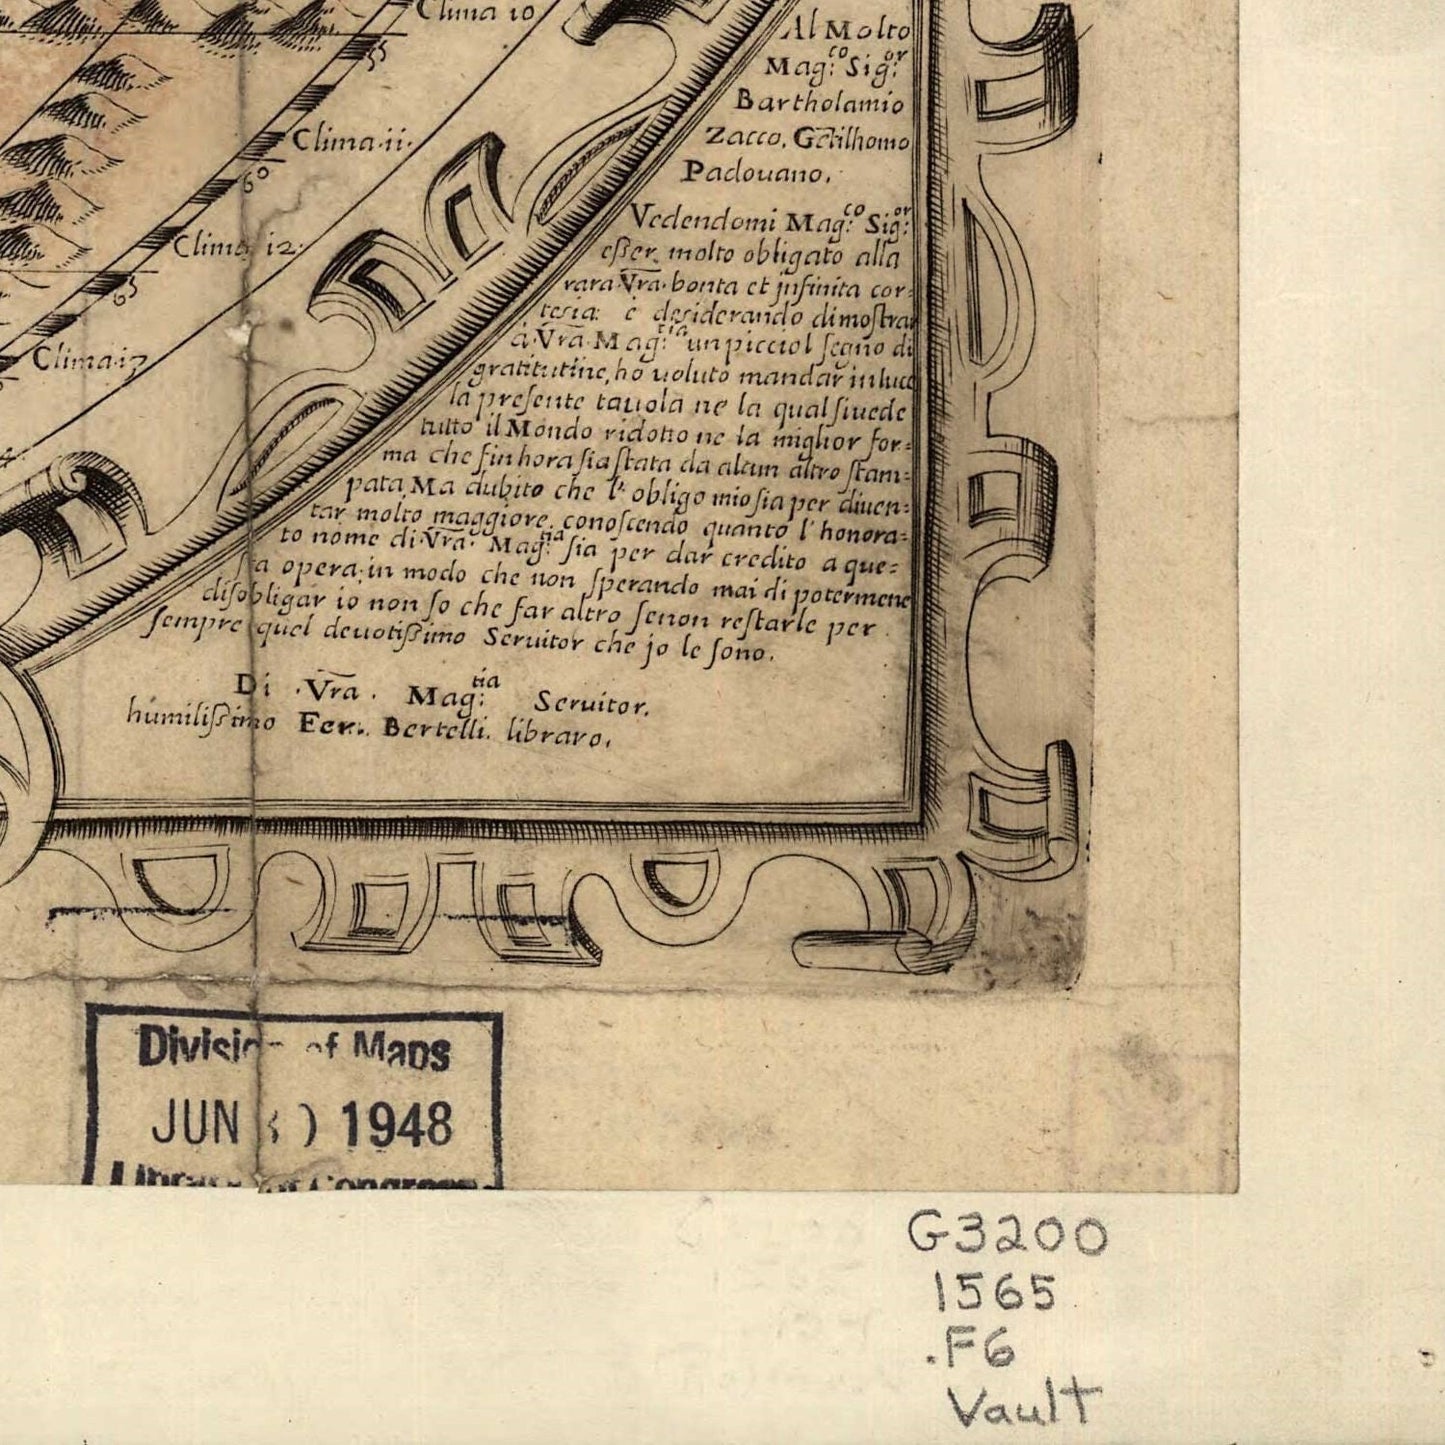 Clima 10
55
Clima·11·
60
Clima 12·
65
Clima·13
Al Molto
Mag:co Sig:or
Bartholamio
Zacco, Gẽtilhomo
Padouano,
Vedendomi Mag:co Sig:or
eßer molto obligato alla
rara Vr̃a bonta et infinita cor=
tesia: è desiderando dimoſtrar
à·Vr̃a·Mag:tia un picciol ſegno di
gratitutine, ho uoluto mandar in luce
la preſente tauola ne la qual ſiuede
tutto il Mondo ridotto ne la miglior for=
ma che ſinhora ſia ſtata da alcun altro ſtam=
pata, Ma dubito che l' obligo mio ſia per diuen=
tar molto maggiore, conoſcendo quanto l'honora=
to nome di Vr̃a· Mag:tia ſia per dar credito a que=
ſta opera; in modo che non ſperando mai di potermene
diſobligar io non ſo che far altro ſenon reſtarle per
ſempre quel deuotißimo Seruitor che io le ſono.
Di ·Vr̃a· Mag:tia Seruitor.
humilißimo Fer. Bertelli. libraro.
Division of Maps
JUN 1948
Library of Congress
G3200
1565
.F6
Vault